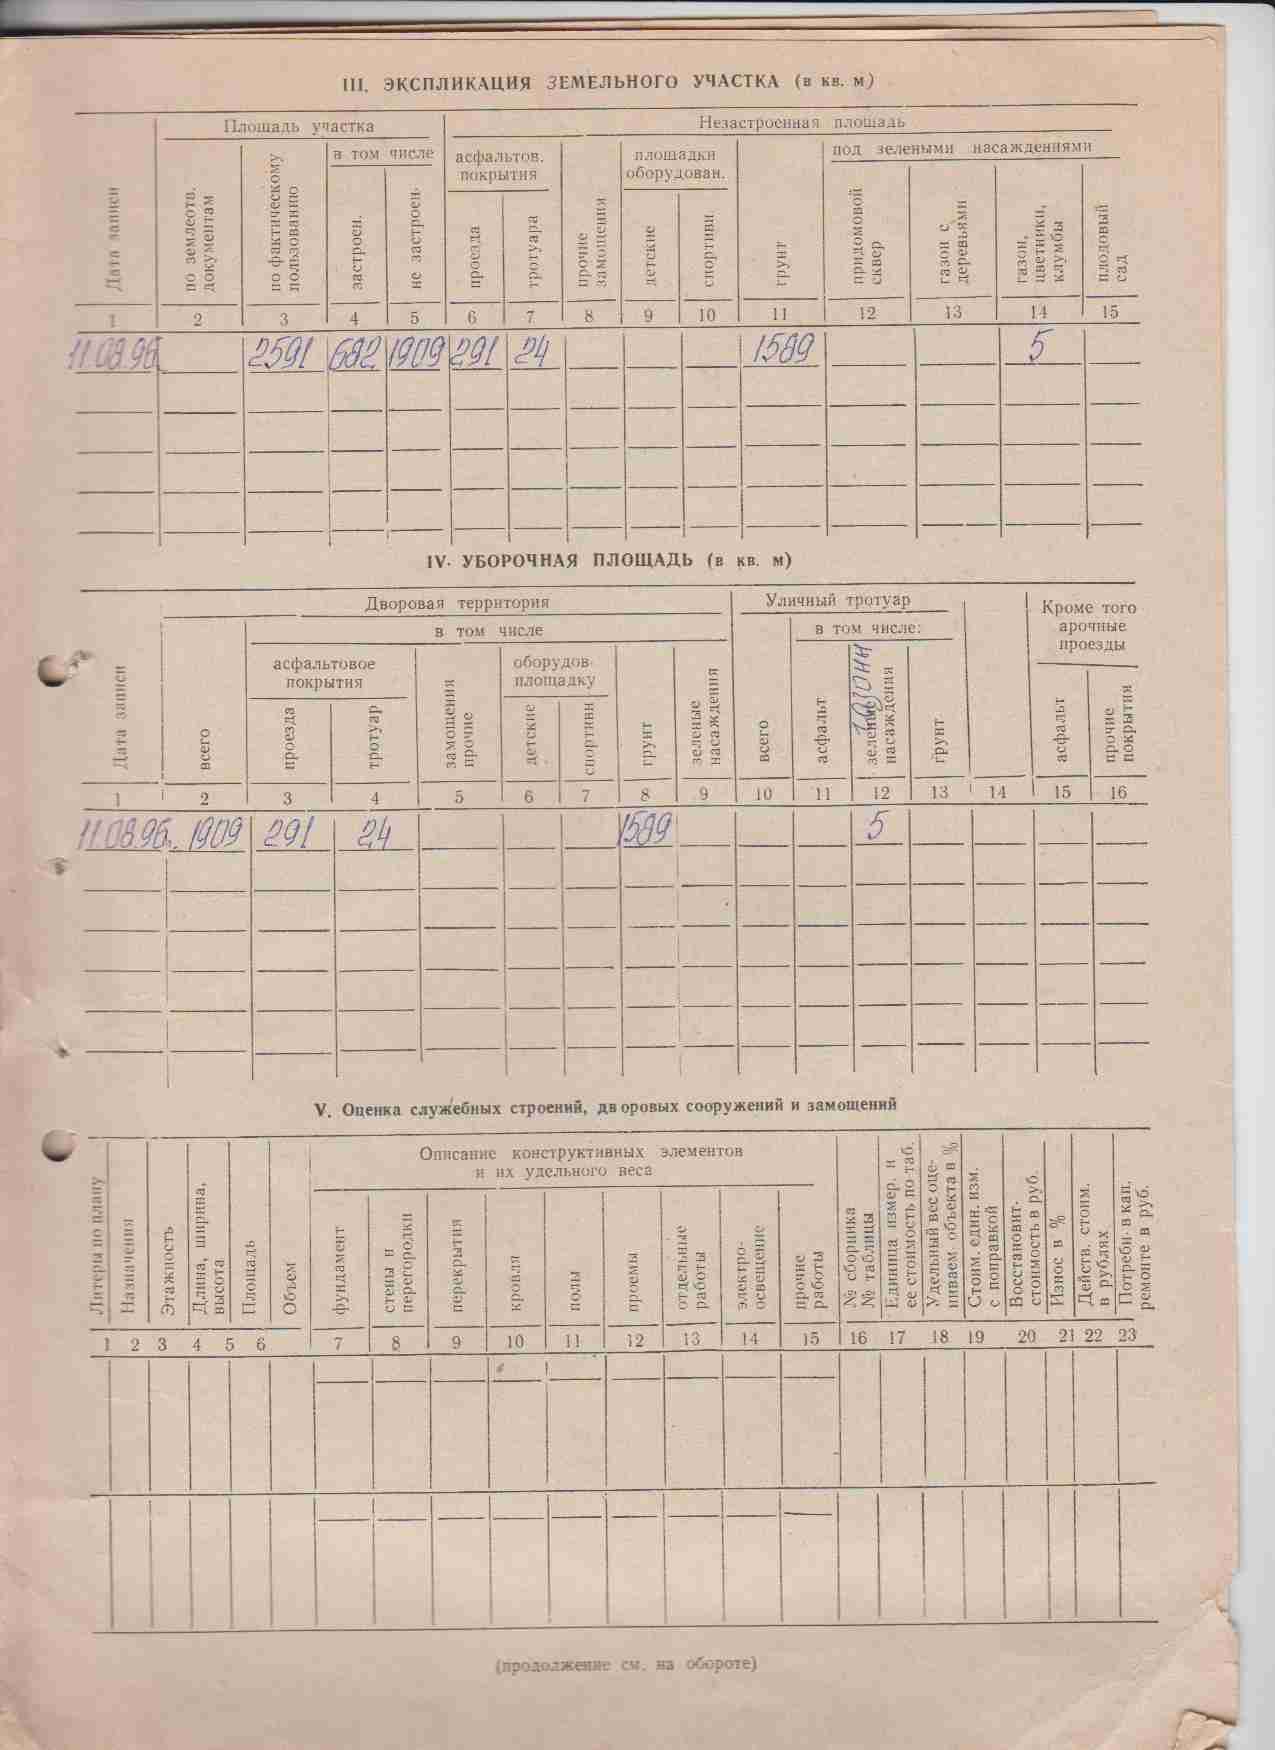 III. ЭКСПЛИКАЦИЯ ЗЕМЕЛЬНОГО УЧАСТКА (в кв. м)
Дата записи
Площадь участка
по землеотв. документам
по фактическому пользованию
в том числе
застроен.
не застроен.
Незастроенная площадь
асфальтов. покрытия
проезда
тротуара
прочие замощения
площадки оборудован.
детские
спортивн
грунт
под зелеными насаждениями
придомовой сквер
газон с деревьями
газон, цветники, клумбы
плодовый сад
1 2 3 4 5 6 7 8 9 10 11 12 13 14 15
11.08.96. 2591 682 1909 291 24 1589 5
IV. УБОРОЧНАЯ ПЛОЩАДЬ (в кв. м)
Дата записи
Дворовая территория
всего
в том числе
асфальтовое покрытия
проезда
тротуар
замощения прочие
оборудов. площадку
детские
спортивн
грунт
зеленые насаждения
Уличный тротуар
всего
в том числе:
асфальт
зеленые насаждения
газонн
грунт
Кроме того арочные проезды
асфальт
прочие покрытия
1 2 3 4 5 6 7 8 9 10 11 12 13 14 15 16
11.08.96. 1909 291 24 1589 5
V. Оценка служебных строений, дворовых сооружений и замощений
Литеры по плану
Назначения
Этажность
Длина, ширина, высота
Площадь
Объем
Описание конструктивных элементов и их удельного веса
фундамент
стены и перегородки
перекрытия
кровля
полы
проемы
отдельные работы
электро-освещение
прочие работы
№ сборника № таблицы
Единица измер. и ее стоимость по таб.
Удельный вес оце-ниваем объекта в %
Стоим. един. изм. с поправкой
Восстановит. стоимость в руб.
Износ в %
Действ. стоим. в рублях
Потребн. в кап. ремонте в руб.
1 2 3 4 5 6 7 8 9 10 11 12 13 14 15 16 17 18 19 20 21 22 23
(продолжение см. на обороте)